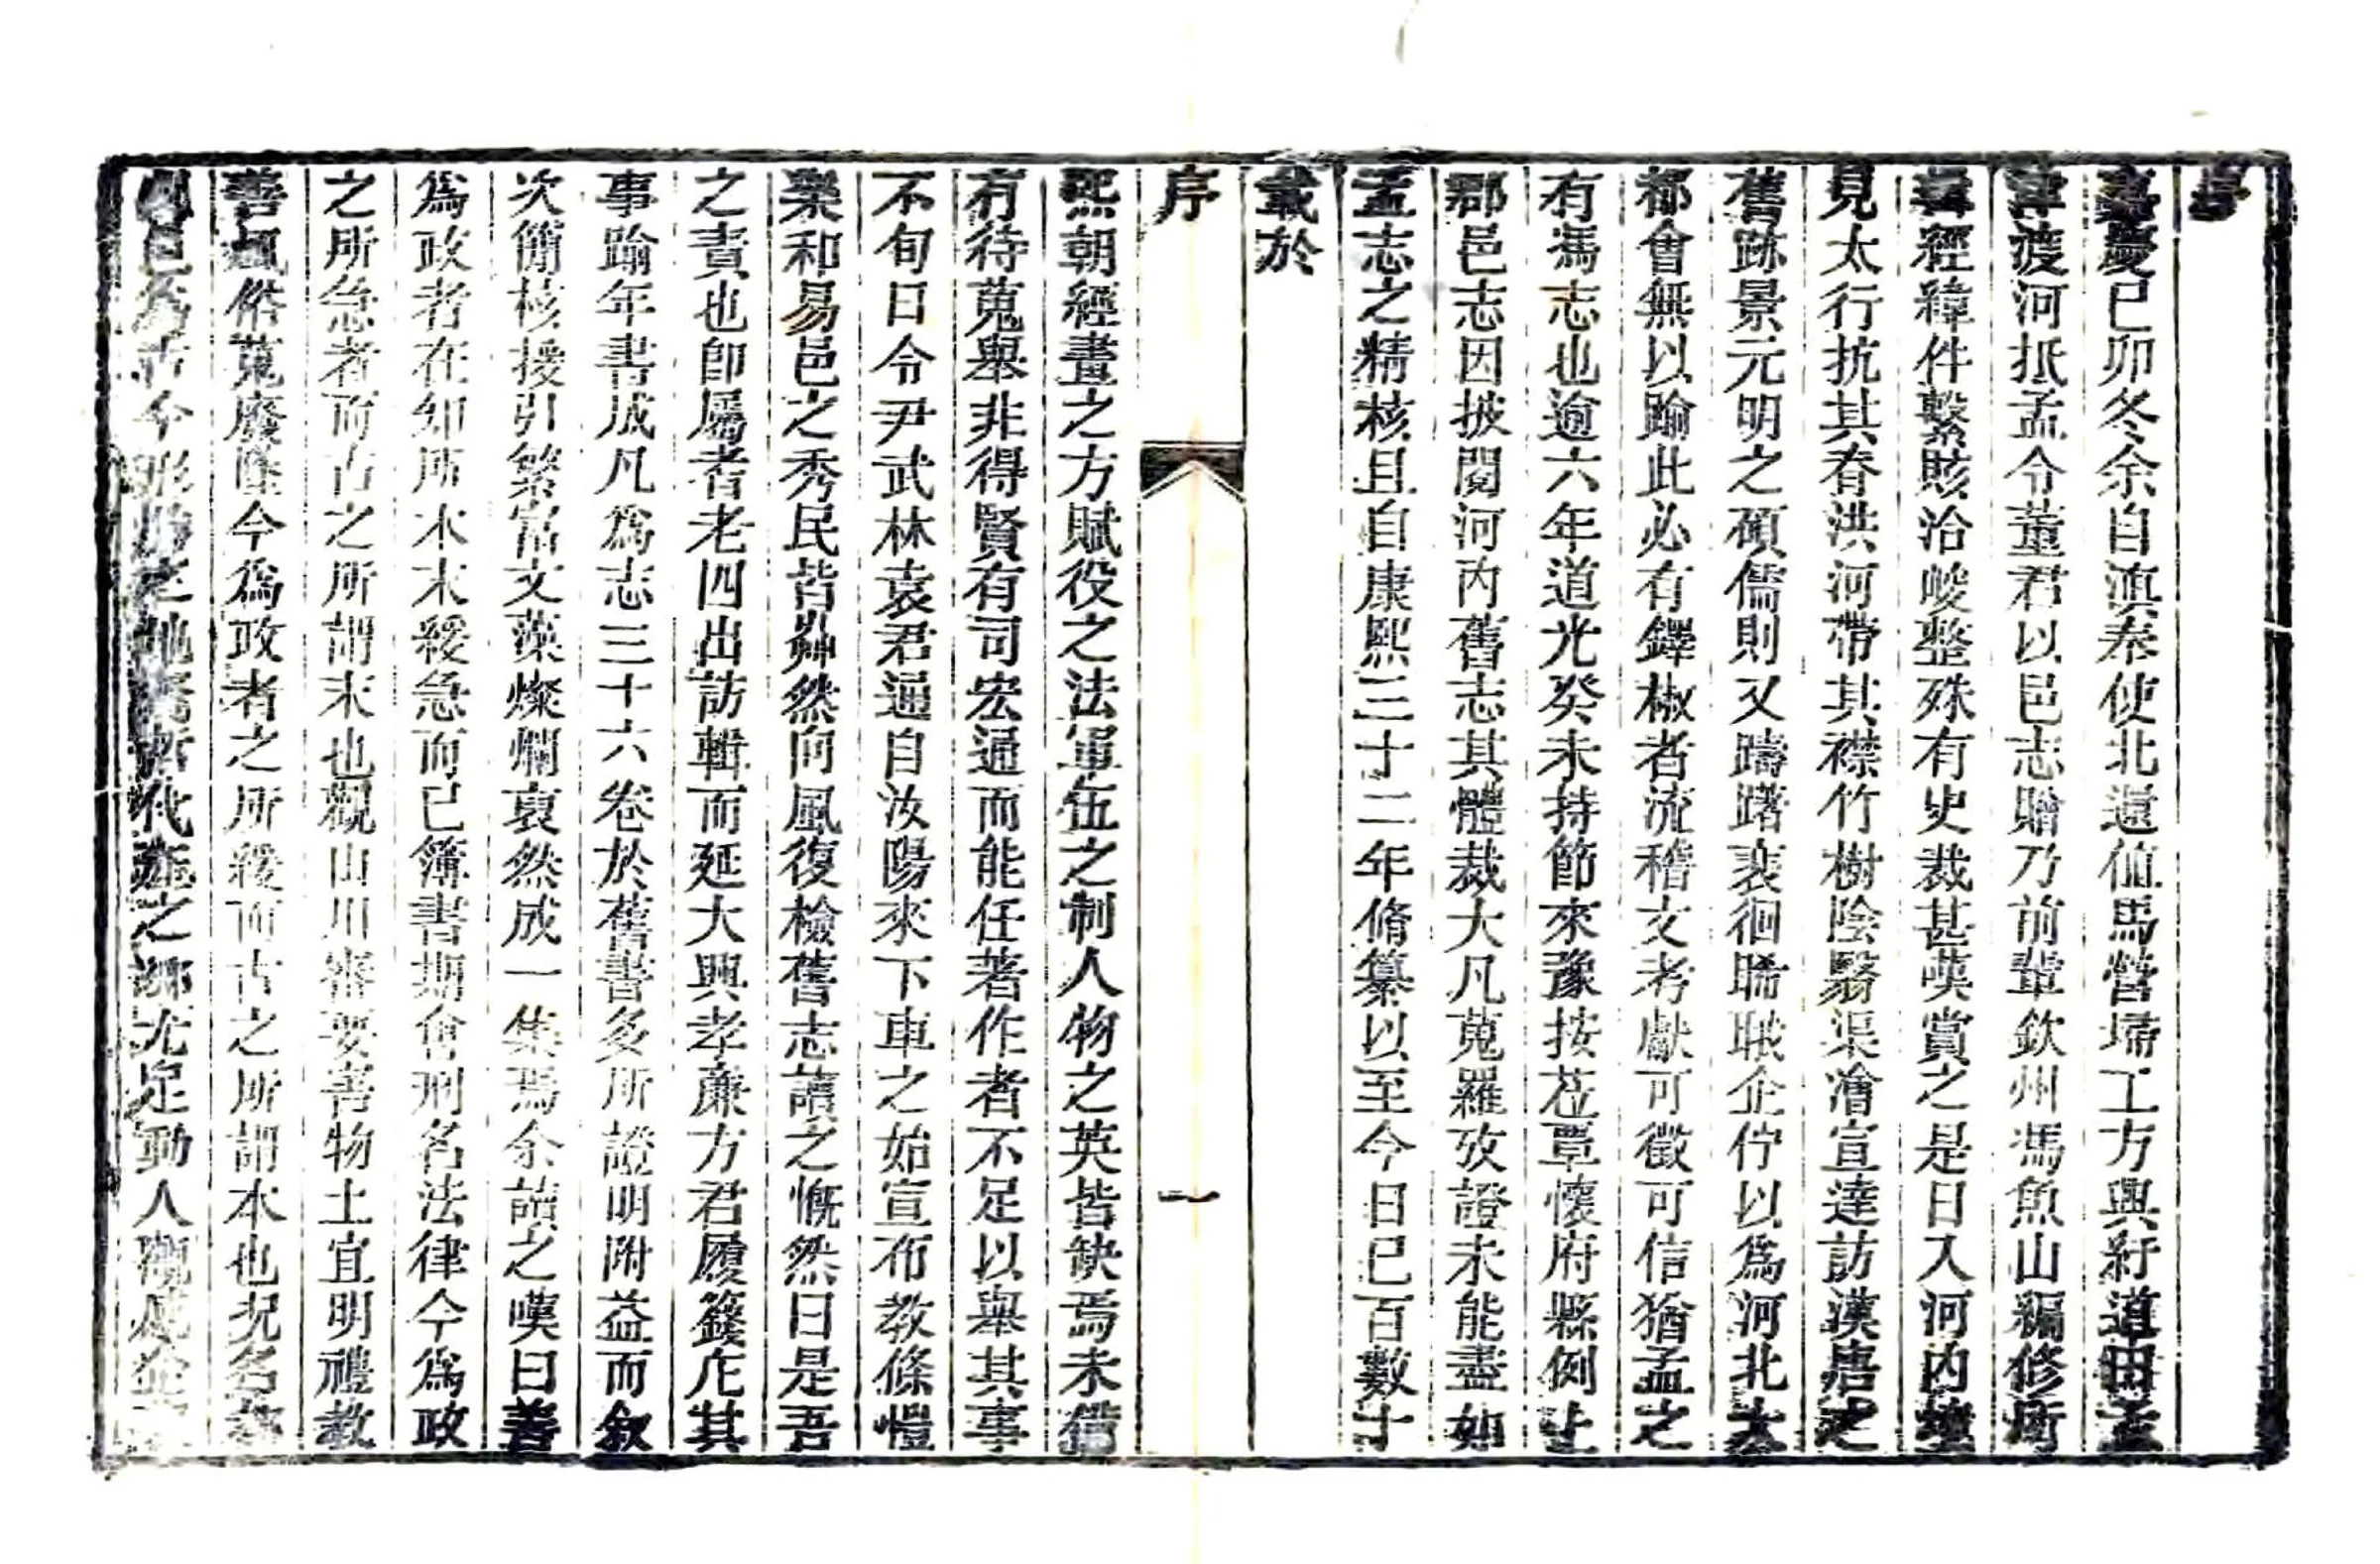 序
嘉慶己卯冬余自滇奉使北還値馬營埽工方興紆道由孟
津渡河抵孟令董君以邑志贈乃前輩欽州馮魚山編修所
輯經緯件繫賅洽峻整殊有史裁甚嘆賞之是日入河内境
見太行抗其脊洪河帶其襟竹樹陰翳渠澮宣達訪漢唐之
舊跡景元明之碩儒則又躊躇裵徊睎眡企佇以爲河北大
都會無以踰此必有鐸椒者流稽文考獻可徵可信猶孟之
有馮志也逾六年道光癸未持節來豫按莅覃懷府縣例上
郡邑志因披閱河内舊志其體裁大凡蒐羅攷證未能盡如
孟志之精核且自康熙三十二年脩纂以至今日已百數十
載於
序
一
熙朝經畫之方賦役之法軍伍之制人物之英皆缺焉未備
有待蒐舉非得賢有司宏通而能任著作者不足以舉其事
不旬日令尹武林袁君通自汝陽來下車之始宣布教條愷
樂和易邑之秀民皆斐然向風復檢舊志讀之慨然曰是吾
之責也卽屬耆老四出訪輯而延大興孝廉方君履籛庀其
事踰年書成凡爲志三十六卷於舊書多所證明附益而敘
次簡核援引繁富文藻燦爛裒然成一集焉余讀之嘆曰善
爲政者在知所本末緩急而已簿書期會刑名法律今爲政
之所急者而古之所謂末也觀山川審要害物土宜明禮教
善風俗蒐廢墜今爲政者之所緩而古之所謂本也況名都
邑爲古今形勝之地 代之鄉尤足動人觀感企